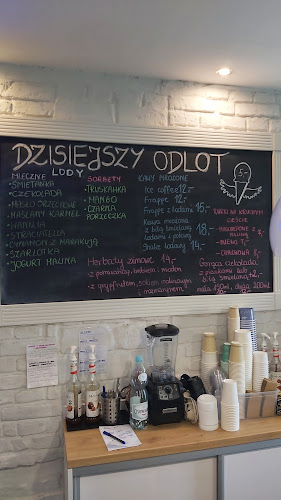 DZISIEJSZY ODLOT
LODY
MLECZNE
•ŚMIETANKA
•CZEKOLADA
•MASŁO ORZECHOWE
•MAŚLANY KARMEL
•WANILIA
•STRACIATELLA
•CYNAMON Z MARAKUJĄ
•SZARLOTKA
•JOGURT MALINA
SORBETY
•TRUSKAWKA
•MANGO
•CZARNA
PORZECZKA
KAWY MROŻONE
Ice coffee 12,-
Frappe 12,-
Frappe z lodami 15,-
Kawa mrożona
z bitą śmietaną 18,-
lodami i polewą
Shake lodowy 15,-
Herbaty zimowe 14,-
z pomarańczą, imbirem i miodem
z grejpfrutem, sokiem malinowym
i rozmarynem
5,-
CIEŚCIE
MALINA
Gorąca czekolada
z piankami lub
bitą śmietaną +2,-
mała 150ml, duża 200ml